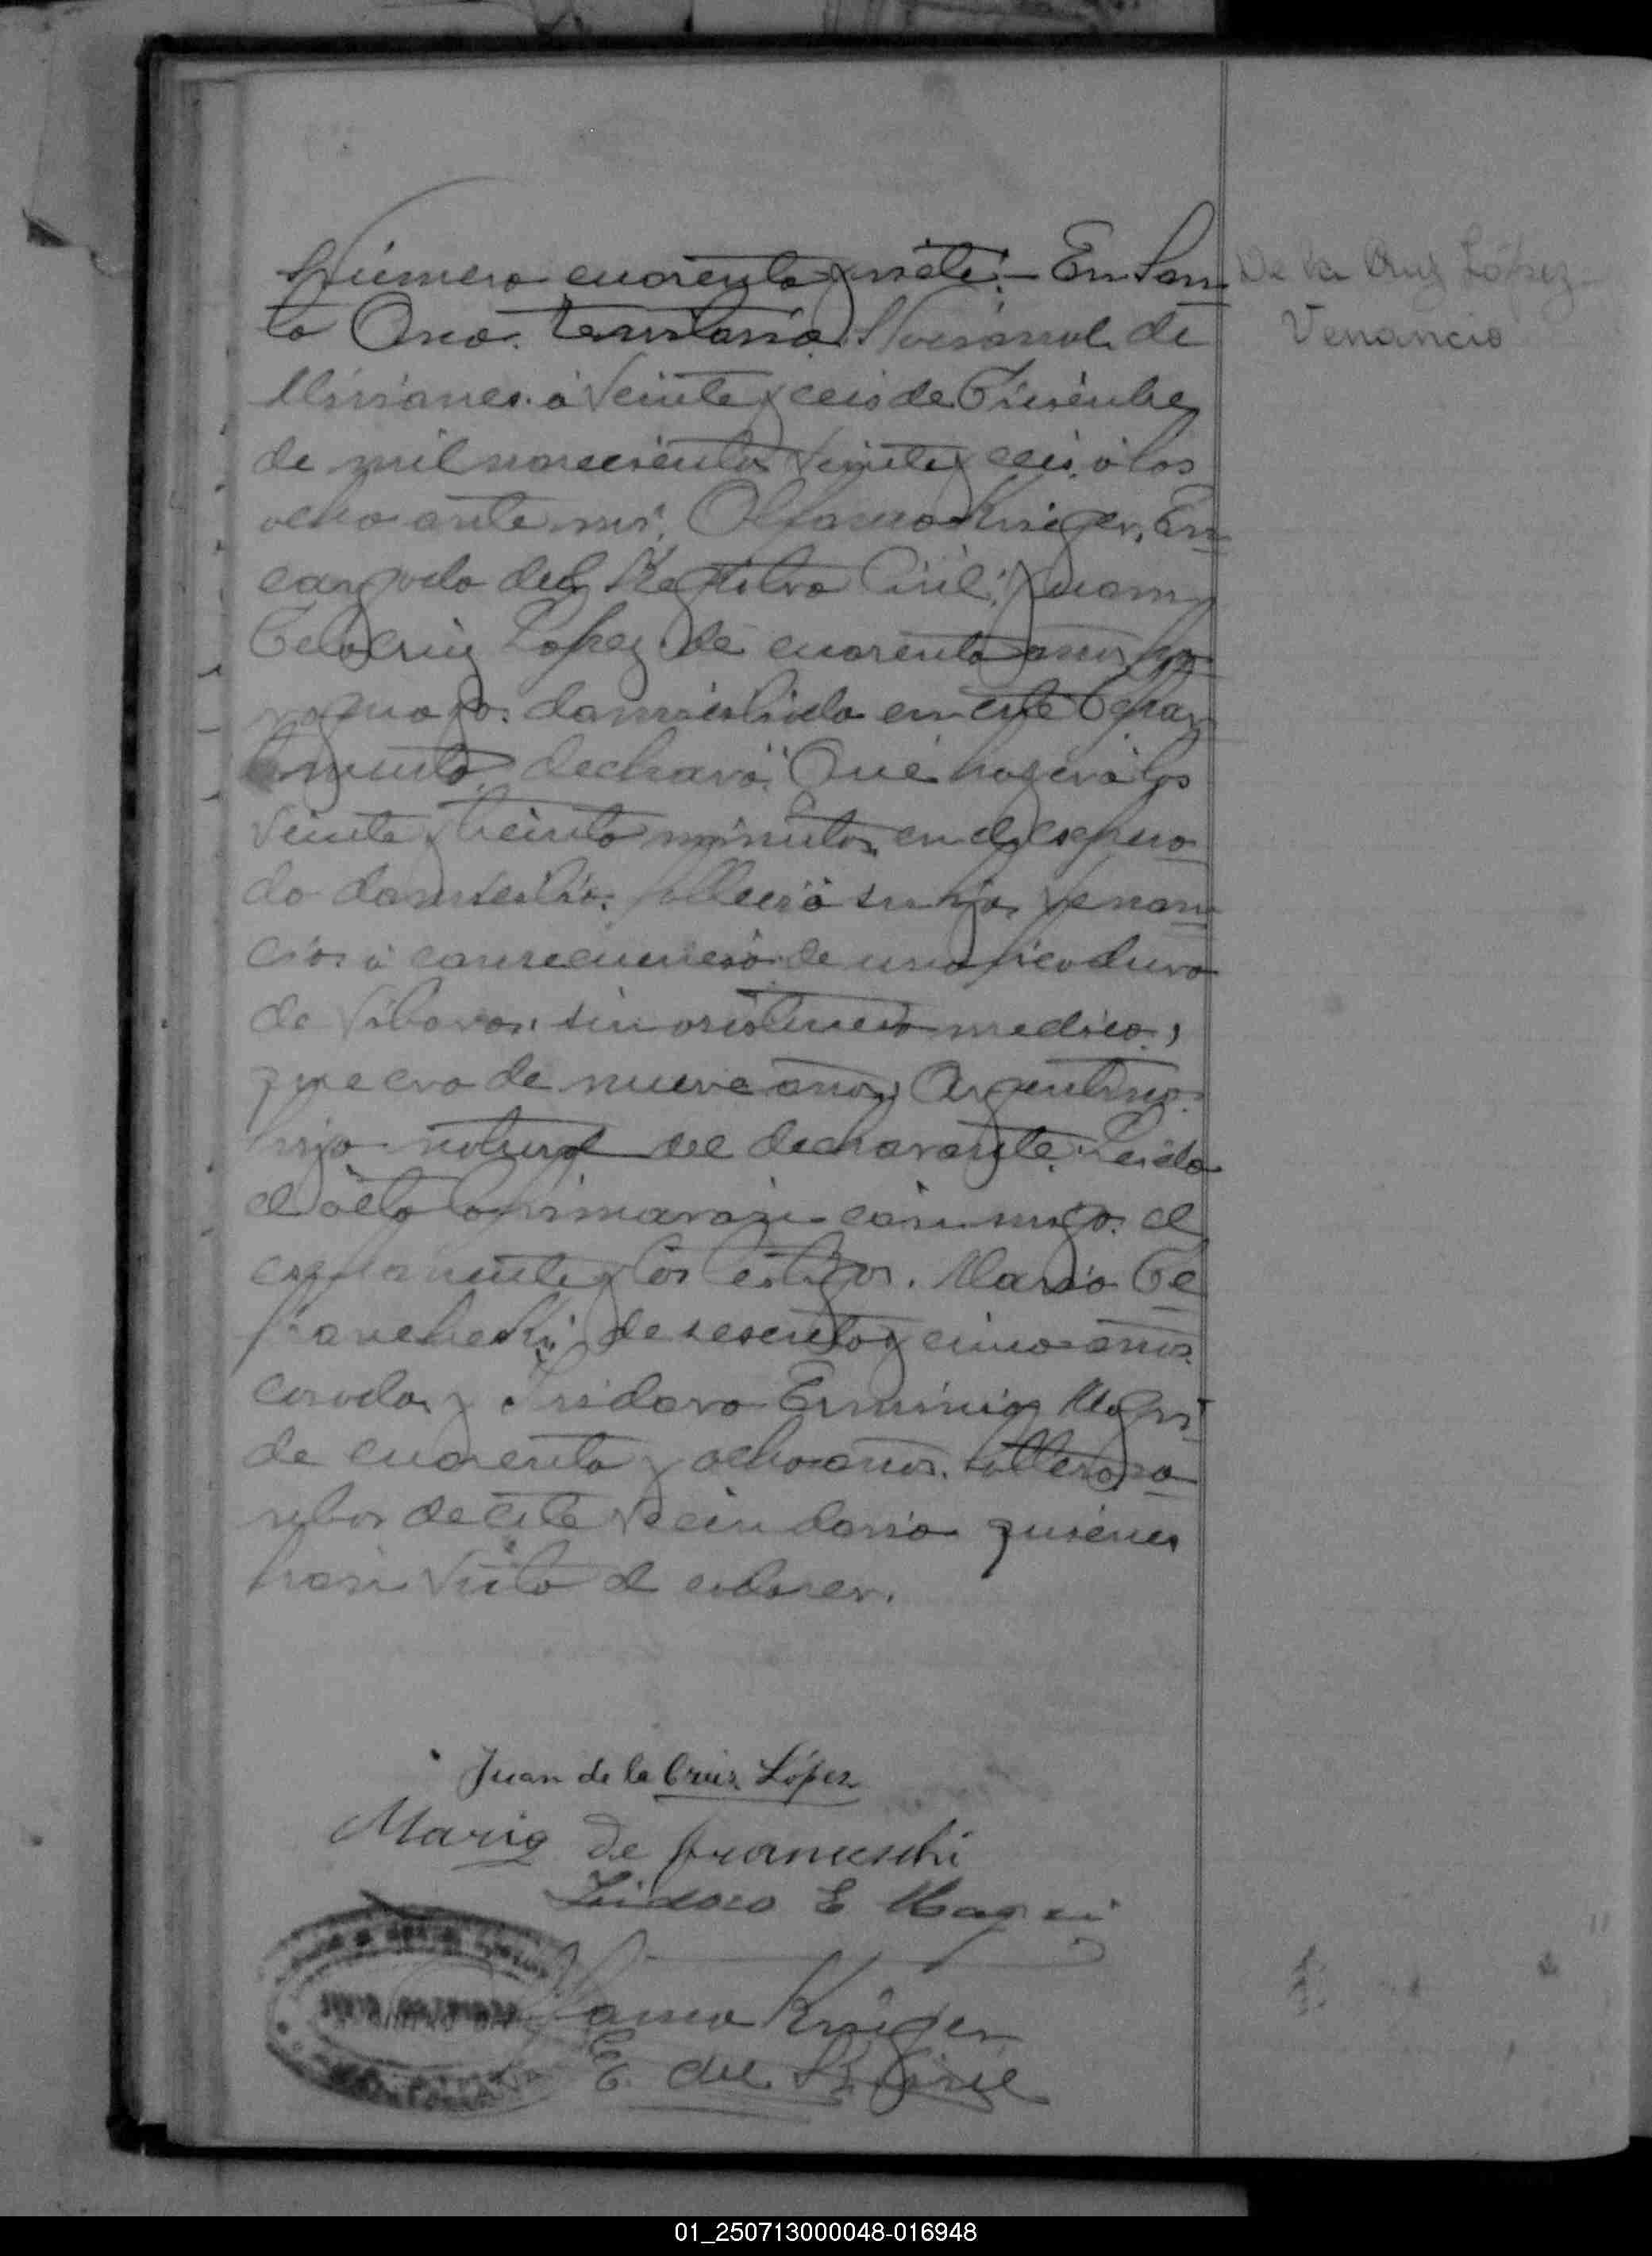 Número cuarenta y siete:- En San
ta Ana. territorio Nacional de
Misiones. á veinte y ceis de Diciembre
de mil novecientos veinte y ceis. á las
ocho ante mi, Kriger, En
cargado del Registro Civil; Juan
De la Cruz Lopez. de cuarenta años, pa
raguayo. domiciliado en este Depar
tamento, declaró: Que hayer á las
veinte y treinta minutos en el espresa
do domicilio. fallecio su hijo Venan
cio. á consecuencia de una picadura
de Vibora. sin asistencia medica,
que era de nueve años, Argentino.
hijo natural del declarante. Leida
el acta la firmaron con migo. el
esponente y los testigos. Mario De
Francheski, de sesenta y cinco años.
casado, y Isidoro Erminio Magri
de cuarenta y ocho años. soltero, a
mbos de este vecindario quienes
han visto el cadaver.
De la Cruz López
Venancio
Juan de la Cruz López
Mario De Franceschi
Isidoro E Magri
Kriger
E. del R. Civil
01_250713000048-016948